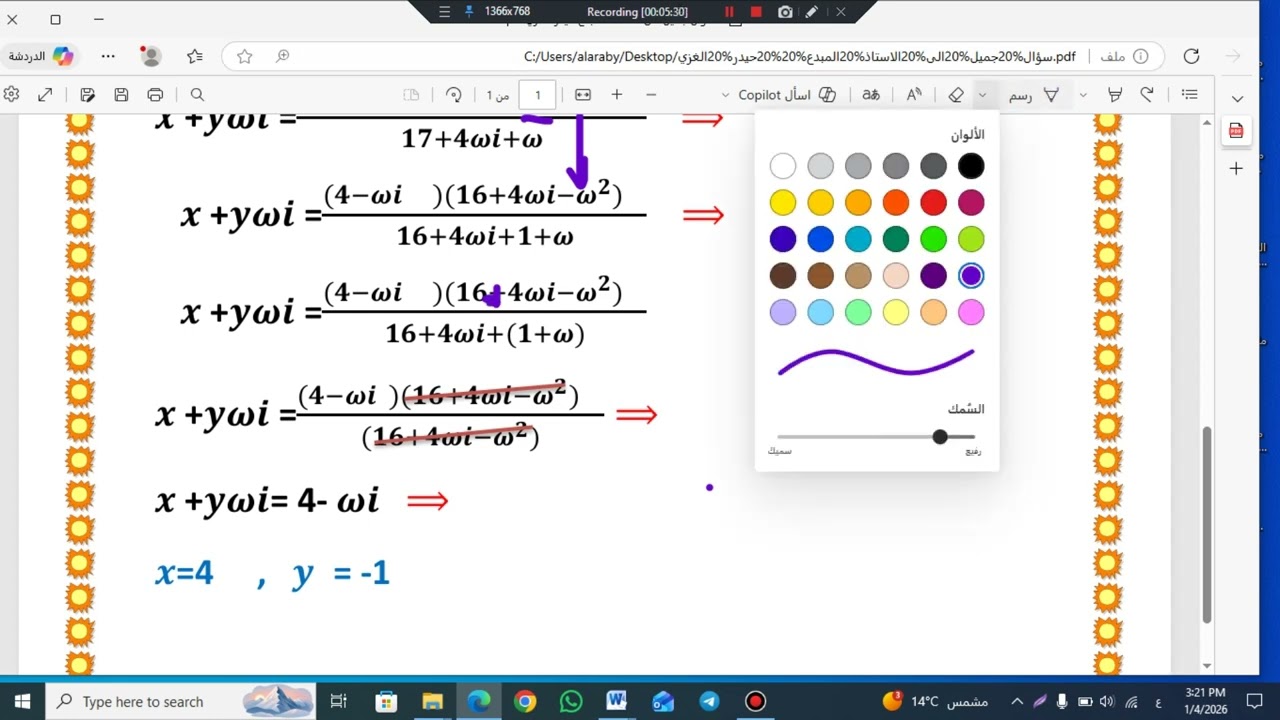 1366x768 Recording [00:05:30]
الدردشة
C:/Users/alaraby/Desktop/سؤال%20جميل%20الى%20الاستاذ%20المبدع%20%20حيدر%20الغزي.pdf
ملف
من 1
1
اسأل Copilot
رسم
x +yωi =
17+4ωi+ω
⟹
x +yωi = (4−ωi )(16+4ωi−ω²)
16+4ωi+1+ω
⟹
x +yωi = (4−ωi )(16+4ωi−ω²)
16+4ωi+(1+ω)
x +yωi = (4−ωi )(16+4ωi−ω²)
(16+4ωi−ω²)
⟹
x +yωi= 4- ωi ⟹
x=4 , y = -1
الألوان
السُمك
رفيع
سميك
PDF
Type here to search
3
14°C مشمس
ع
3:21 PM
1/4/2026